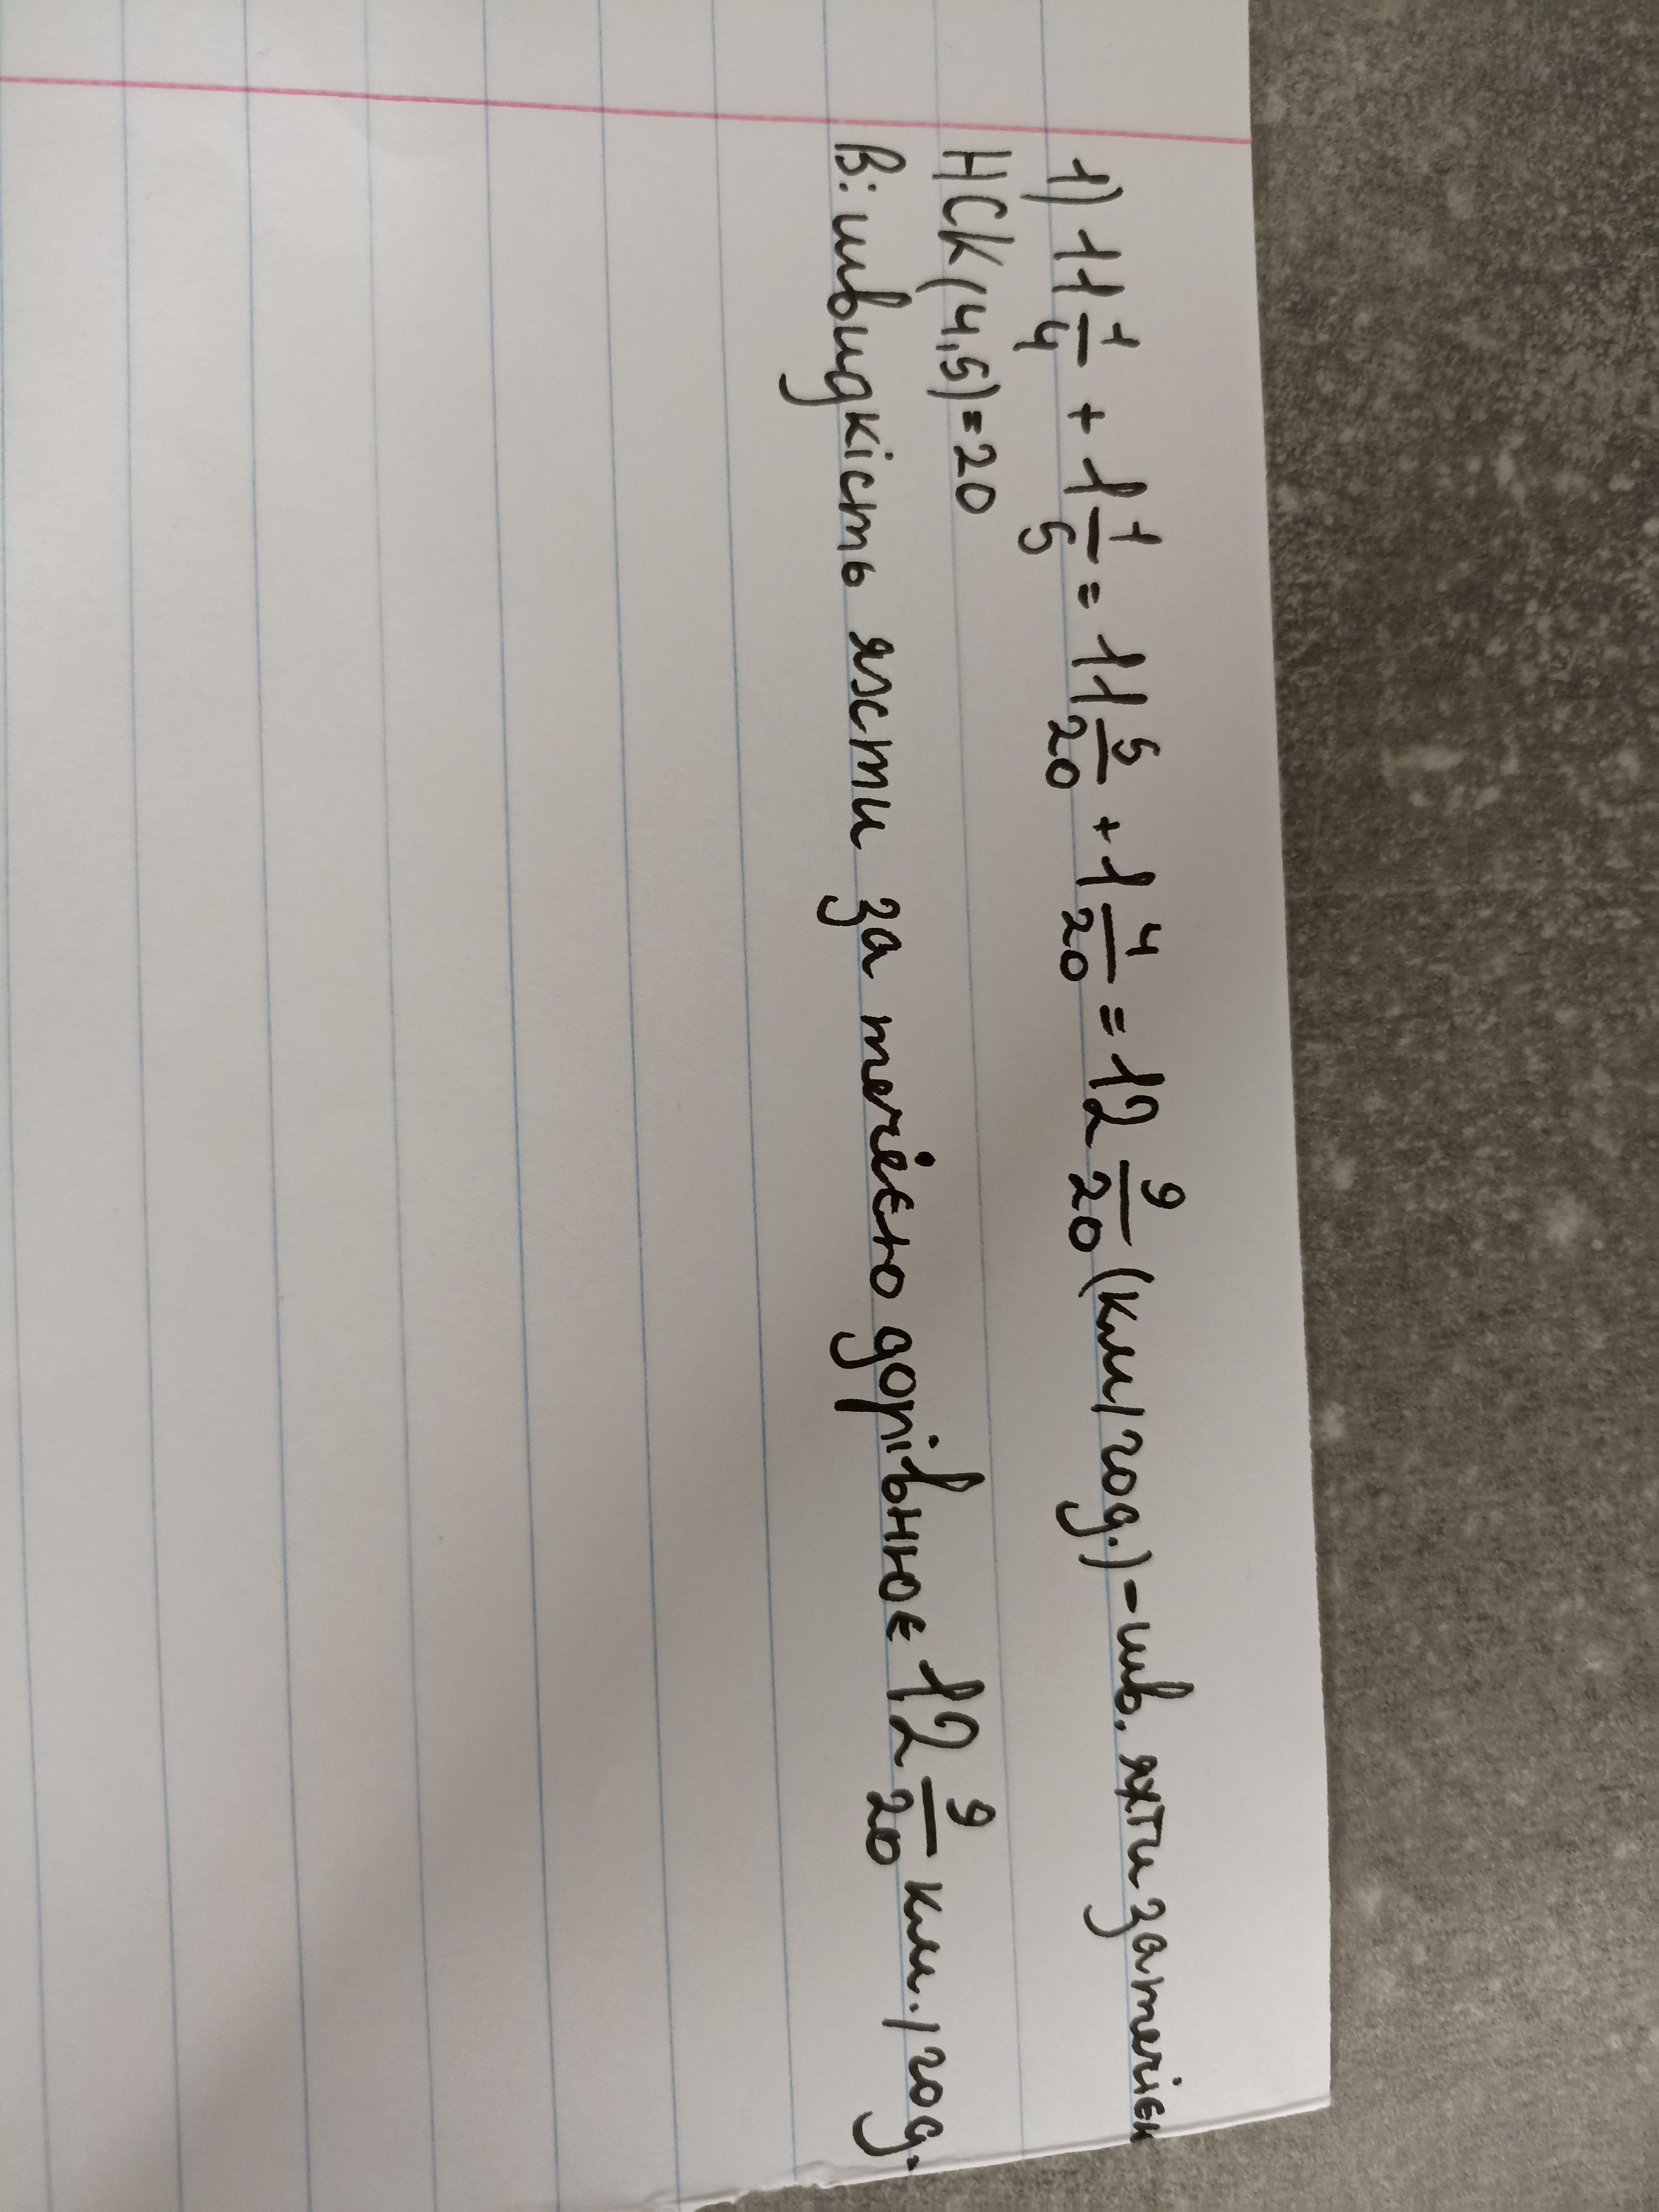 1) 11 1/4 + 1 1/5 = 11 5/20 + 1 4/20 = 12 9/20 (км/год.) - шв. яхти за течією
НСК(4,5)=20
В: швидкість яхти за течією дорівнює 12 9/20 км./год.